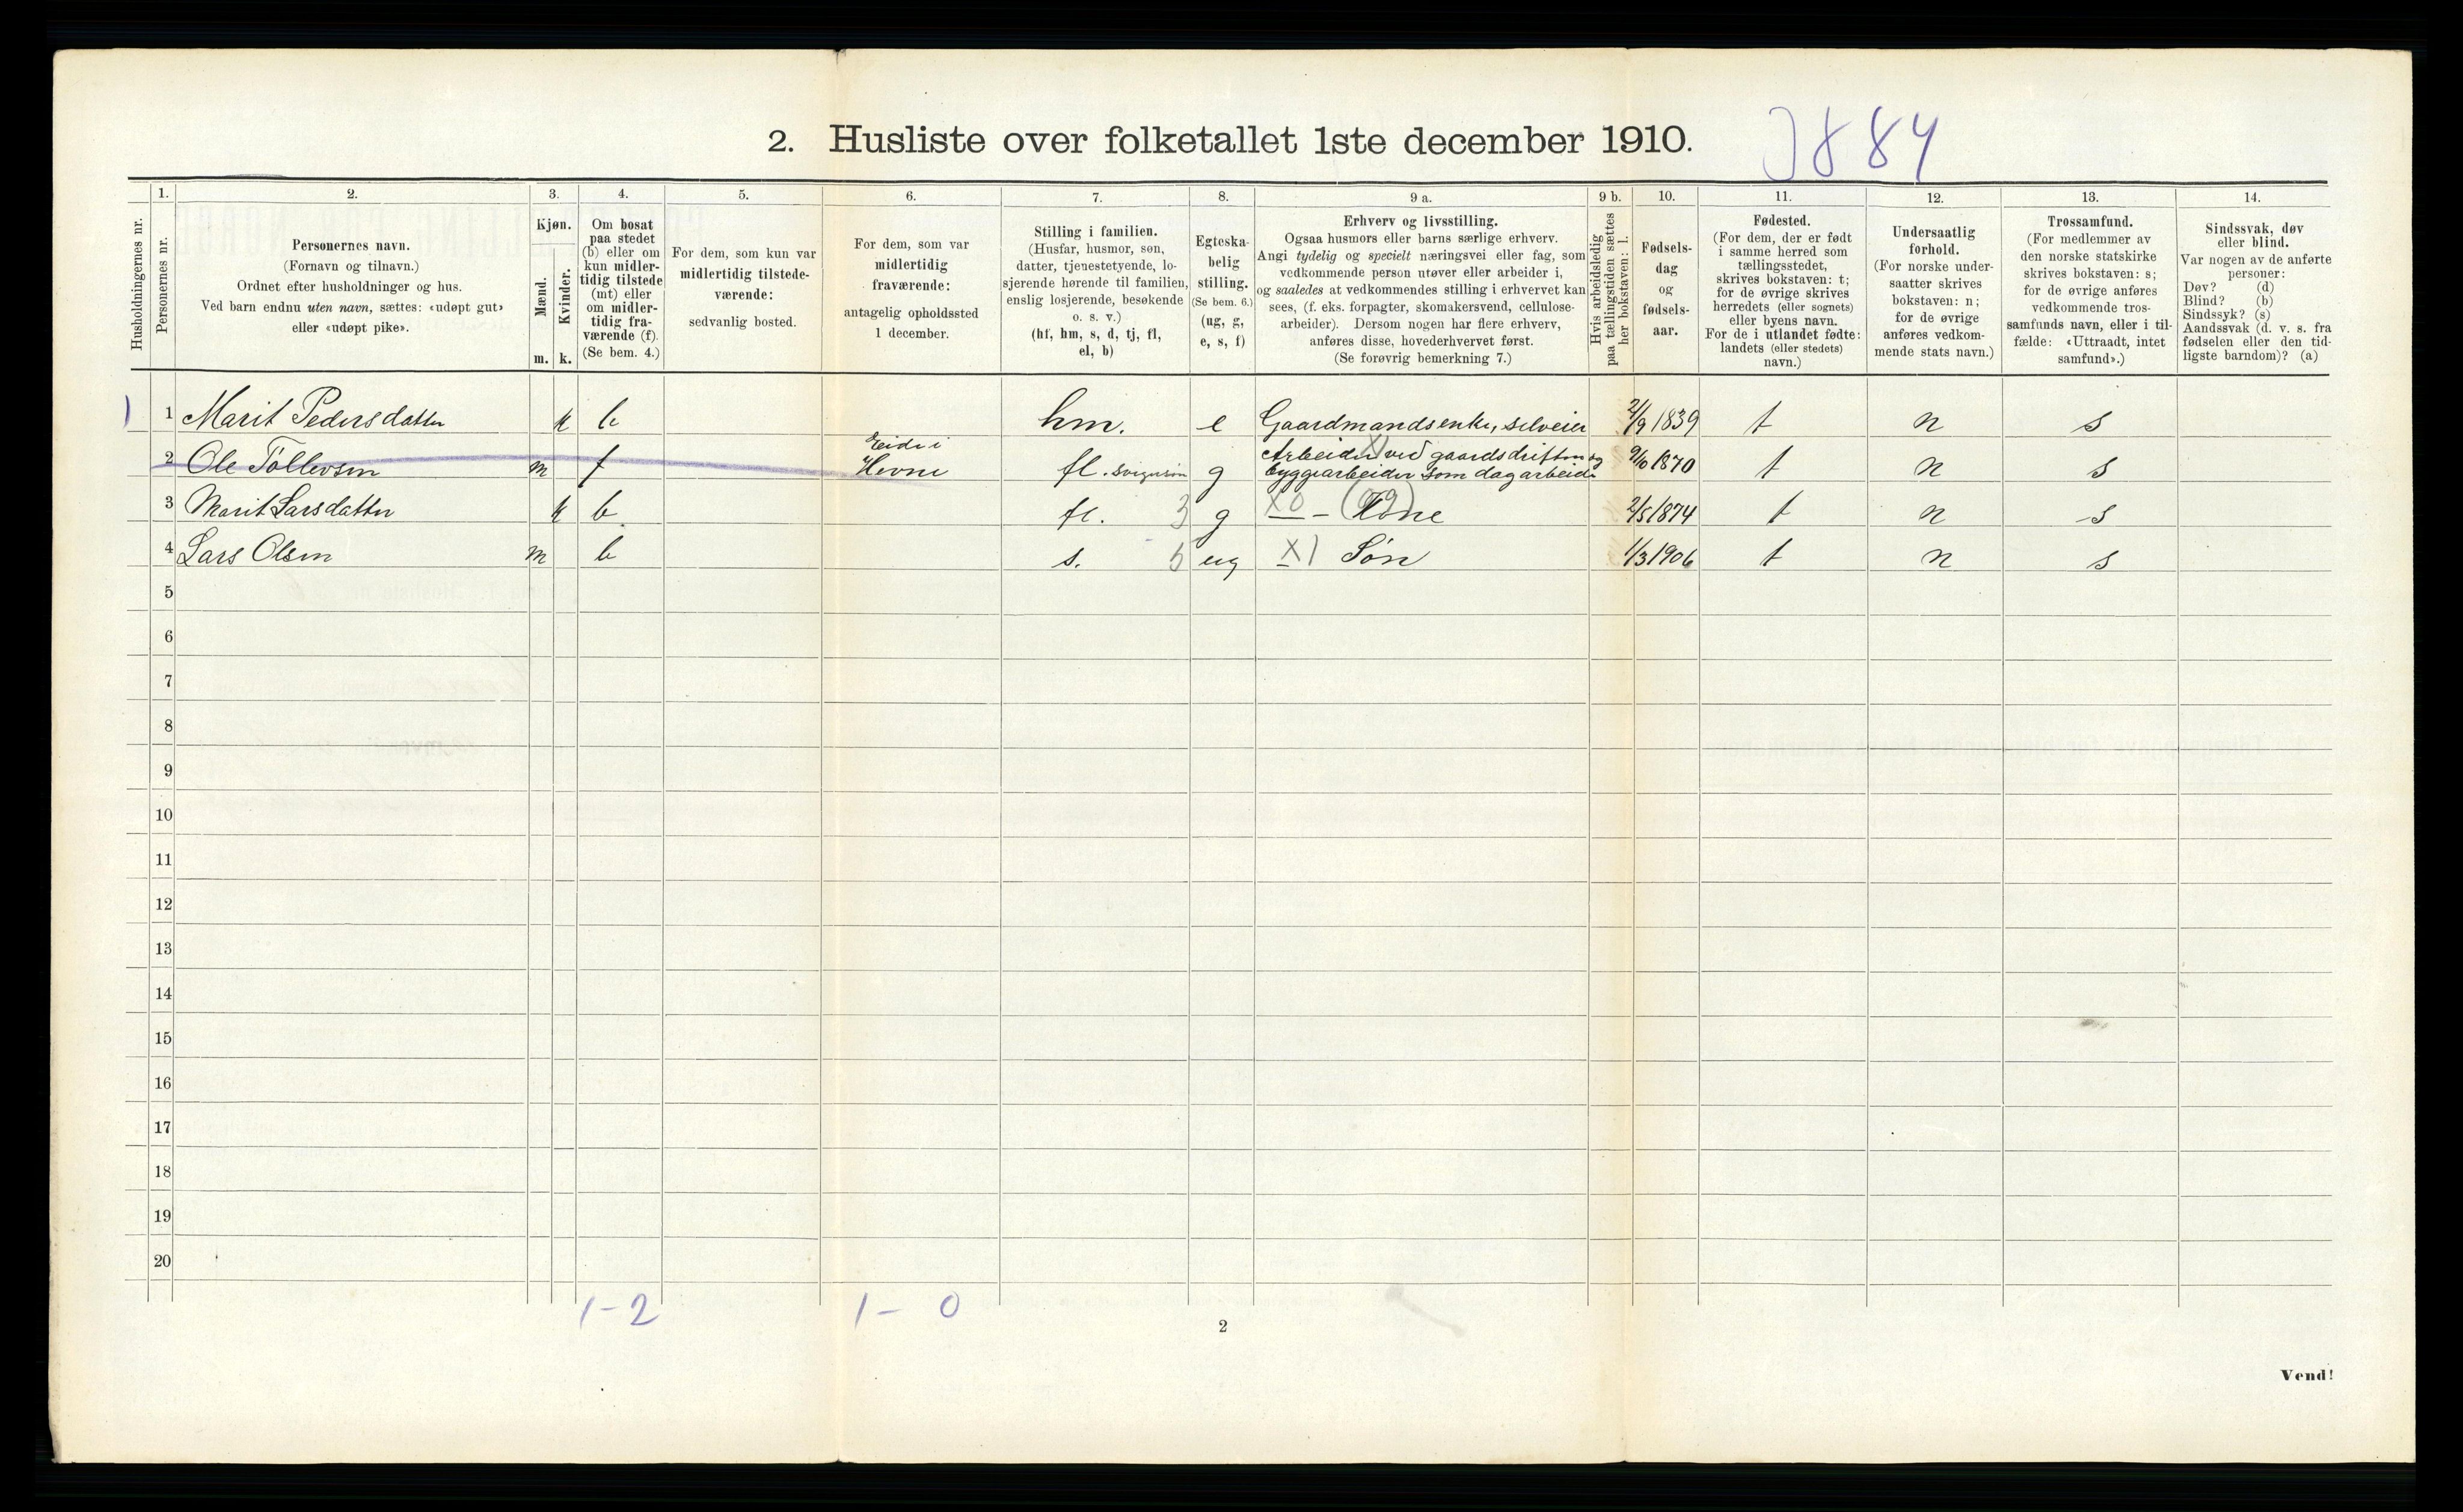 2. Husliste over folketallet 1ste december 1910.
3884
1. 2. 3. 4. 5. 6. 7. 8. 9 a. 9 b. 10. 11. 12. 13. 14.
Husholdningernes nr.
Personernes nr.
Personernes navn.
(Fornavn og tilnavn.)
Ordnet efter husholdninger og hus.
Ved barn endnu uten navn, sættes: «udøpt gut»
eller «udøpt pike».
Kjøn.
Mænd.
Kvinder.
m. k.
Om bosat
paa stedet
(b) eller om
kun midler-
tidig tilstede
(mt) eller
om midler-
tidig fra-
værende (f).
(Se bem. 4.)
For dem, som kun var
midlertidig tilstede-
værende:
sedvanlig bosted.
For dem, som var
midlertidig
fraværende:
antagelig opholdssted
1 december.
Stilling i familien.
(Husfar, husmor, søn,
datter, tjenestetyende, lo-
sjerende hørende til familien,
enslig losjerende, besøkende
o. s. v.)
(hf, hm, s, d, tj, fl,
el, b)
Egteska-
belig
stilling.
(Se bem. 6.)
(ug, g,
e, s, f)
Erhverv og livsstilling.
Ogsaa husmors eller barns særlige erhverv.
Angi tydelig og specielt næringsvei eller fag, som
vedkommende person utøver eller arbeider i,
og saaledes at vedkommendes stilling i erhvervet kan
sees, (f. eks. forpagter, skomakersvend, cellulose-
arbeider). Dersom nogen har flere erhverv,
anføres disse, hovederhvervet først.
(Se forøvrig bemerkning 7.)
Hvis arbeidsledig
paa tællingstiden sættes
her bokstaven: l.
Fødsels-
dag
og
fødsels-
aar.
Fødested.
(For dem, der er født
i samme herred som
tællingsstedet,
skrives bokstaven: t;
for de øvrige skrives
herredets (eller sognets)
eller byens navn.
For de i utlandet fødte:
landets (eller stedets)
navn.)
Undersaatlig
forhold.
(For norske under-
saatter skrives
bokstaven: n;
for de øvrige
anføres vedkom-
mende stats navn.)
Trossamfund.
(For medlemmer av
den norske statskirke
skrives bokstaven: s;
for de øvrige anføres
vedkommende tros-
samfunds navn, eller i til-
fælde: «Uttraadt, intet
samfund».)
Sindssvak, døv
eller blind.
Var nogen av de anførte
personer:
Døv? (d)
Blind? (b)
Sindssyk? (s)
Aandssvak (d. v. s. fra
fødselen eller den tid-
ligste barndom)? (a)
1 1 Marit Pedersdatter k b hm. e Gaardmandsenke, selveier 2/9 1839 t n s
2 Ole Tollevsen m f Eide i Hevne fl. Svigersøn g Arbeider ved gaardsdriften og byggearbeider som dagarbeider 9/10 1870 t n s
3 Marit Larsdatter k b fl. 3 g X0 — Kone 2/5 1874 t n s
4 Lars Olsen m b s. 5 ug X1 Søn 1/3 1906 t n s
5
6
7
8
9
10
11
12
13
14
15
16
17
18
19
20
1-2 1- 0
2
Vend!